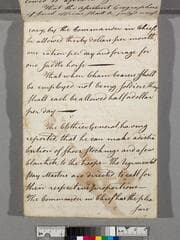 That the assistant Geographers
sary by the Commander in Chief
be allowed thirty dollars per month
one ration per day and forage for
one saddle horse —
That when chain bearers shall
be employed not being soldiers they
shall each be allowed half a dollar
per day —
The Clothier General having
reported that he can make a distri-
bution of shoes stockings and a few
blankets to the troops — The regimental
Pay Masters are directed to call for
their respective proportions —
The Commander in Chief has the plea
sure